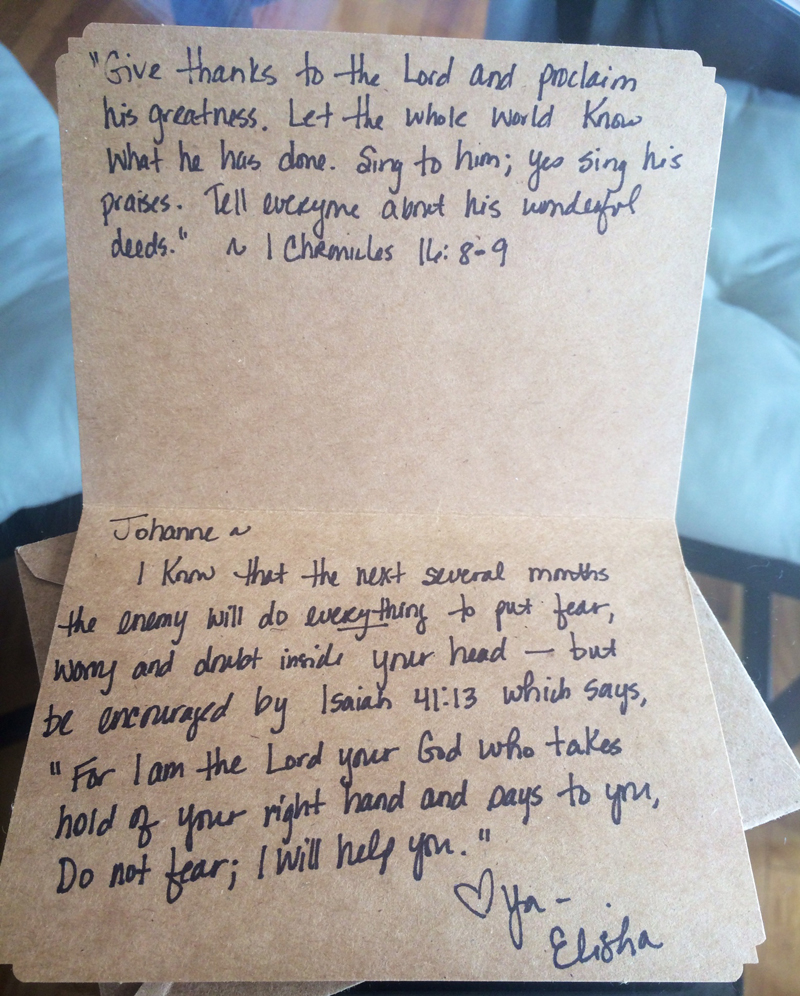 "Give thanks to the Lord and proclaim
his greatness. Let the whole world know
what he has done. Sing to him; yes sing his
praises. Tell everyone about his wonderful
deeds." ~ 1 Chronicles 16: 8-9
Johanne ~
I know that the next several months
the enemy will do everything to put fear,
worry and doubt inside your head — but
be encouraged by Isaiah 41:13 which says,
"For I am the Lord your God who takes
hold of your right hand and says to you,
Do not fear; I will help you."
♡ ya -
Elisha